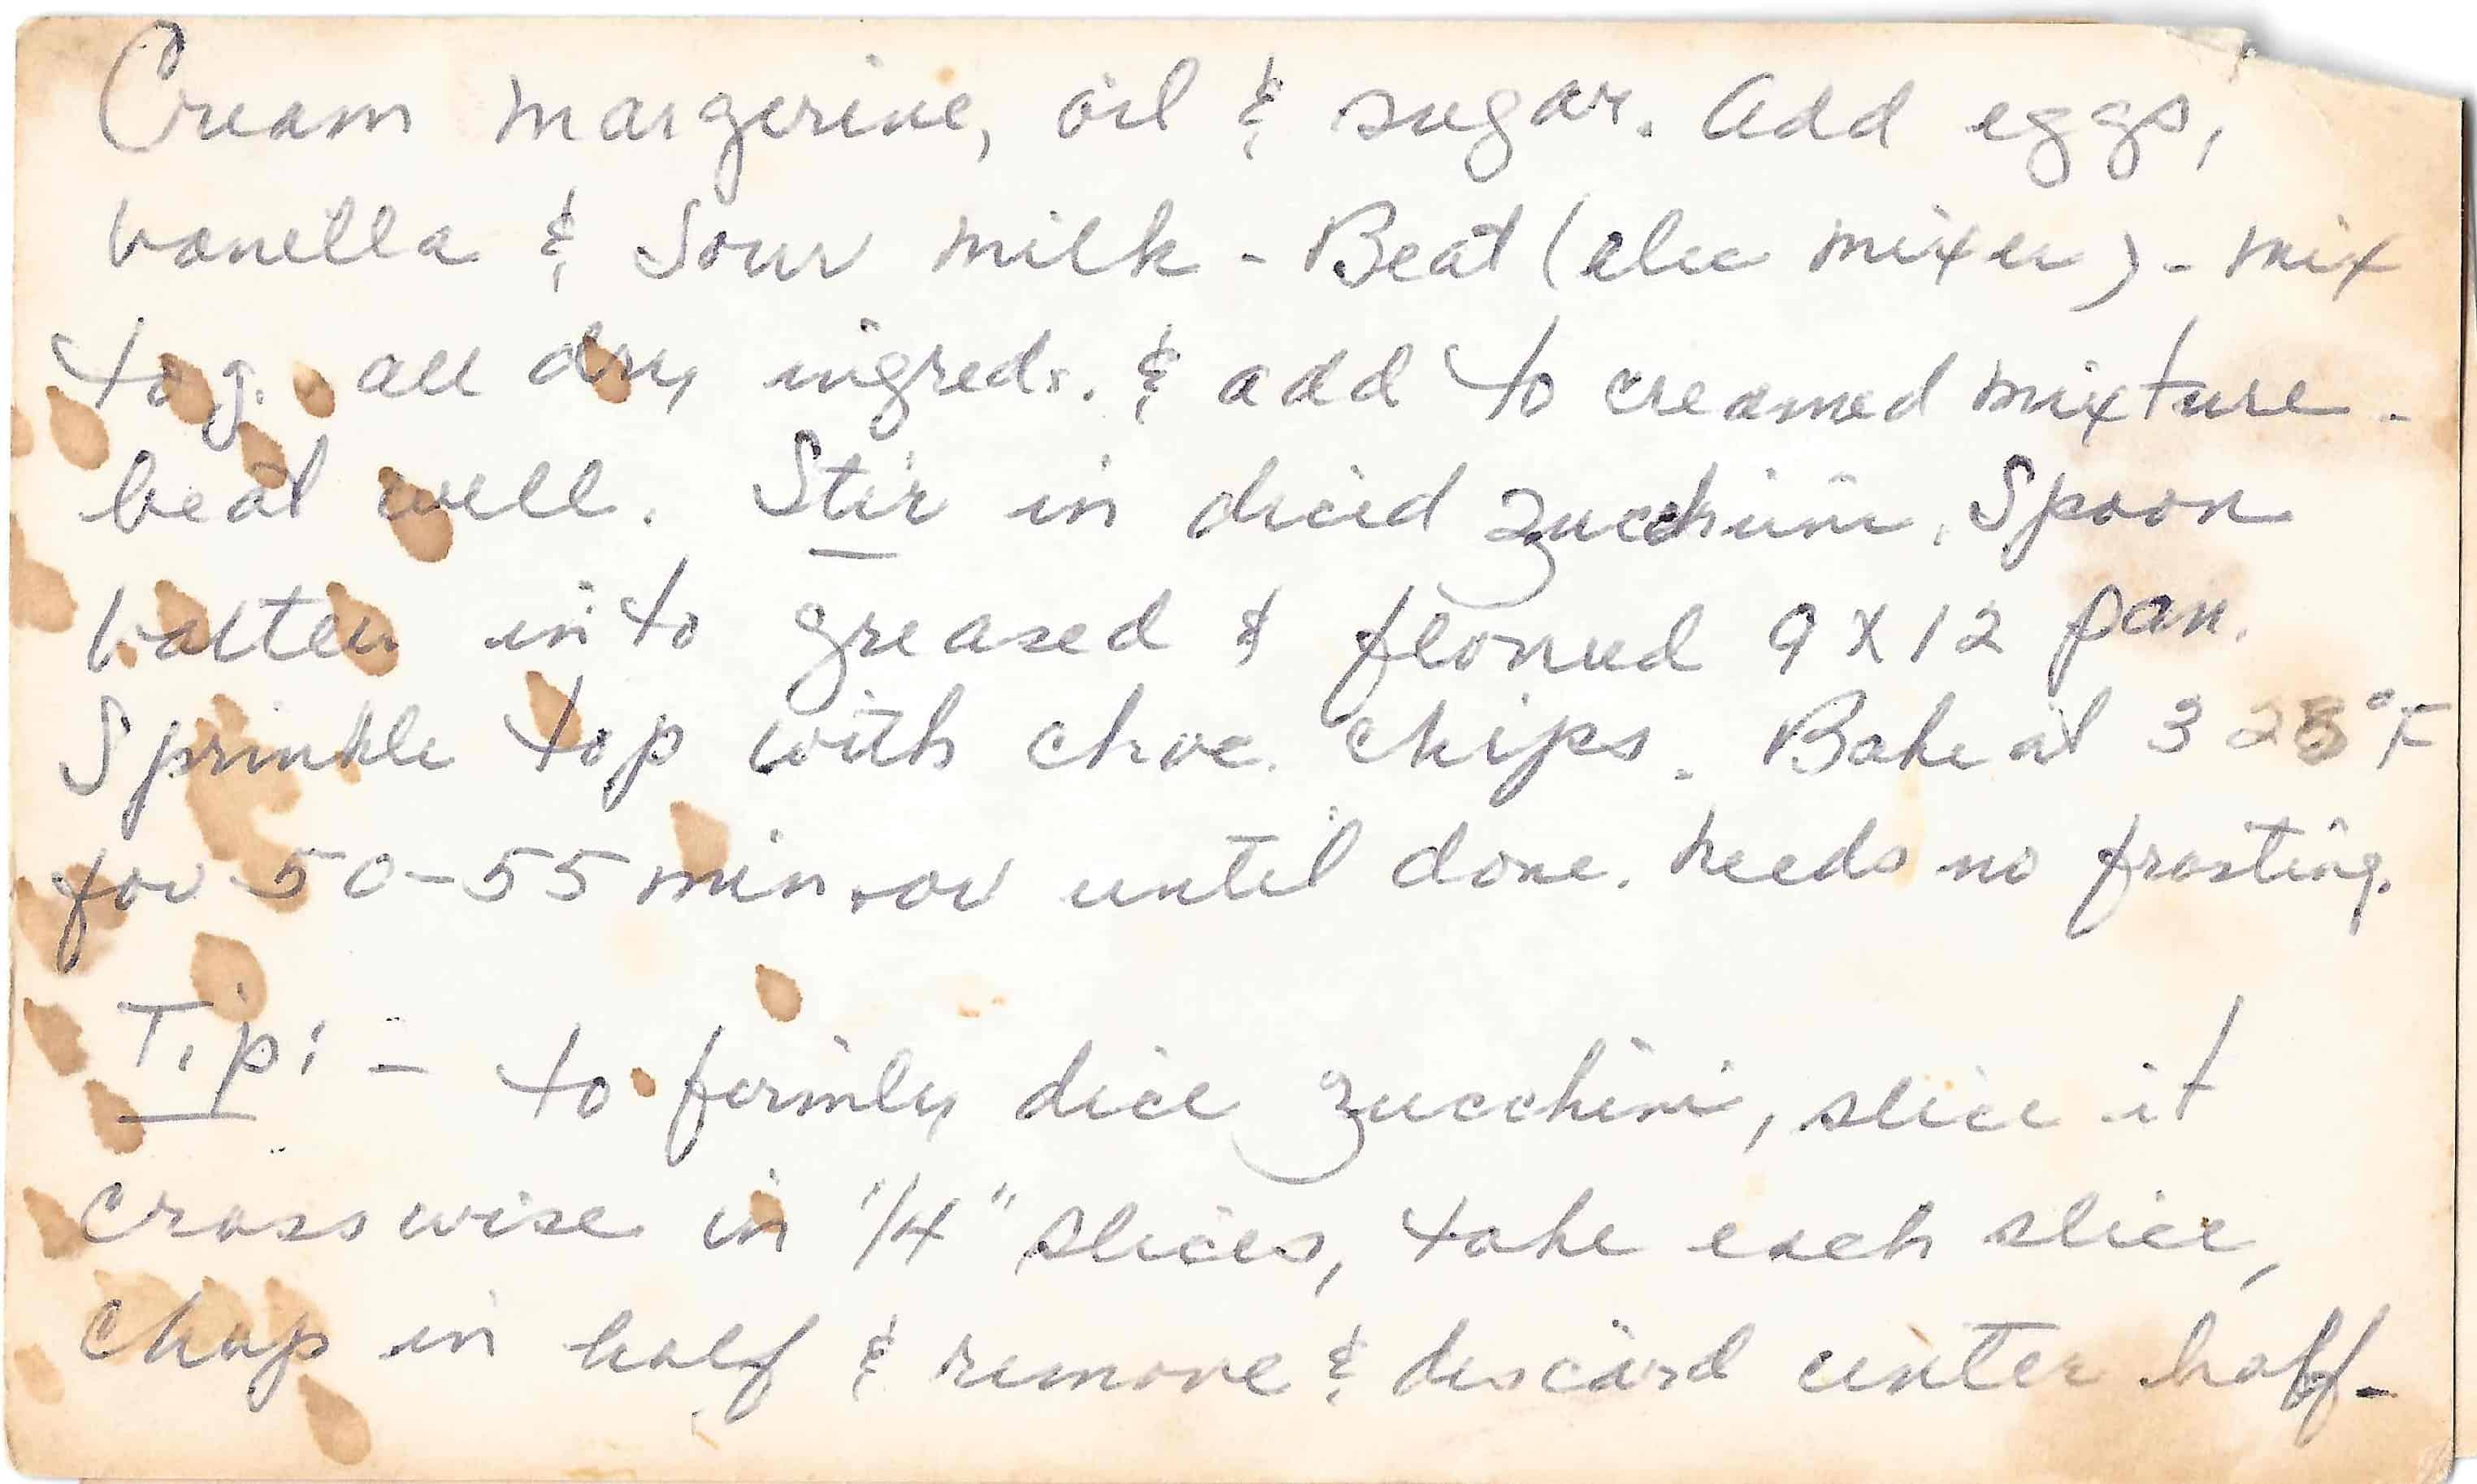 Cream margerine, oil & sugar. Add eggs,
vanilla & Sour milk - Beat (elec mixer) - mix
tog. all dry ingreds. & add to creamed mixture -
beat well. Stir in diced zucchini. Spoon
batter into greased & floured 9 X 12 pan.
Sprinkle top with choc. chips. Bake at 325°F
for 50-55 min. or until done. needs no frosting.
Tip: - to firmly dice zucchini, slice it
crosswise in 1/4" slices, take each slice,
chop in half & remove & discard center half -